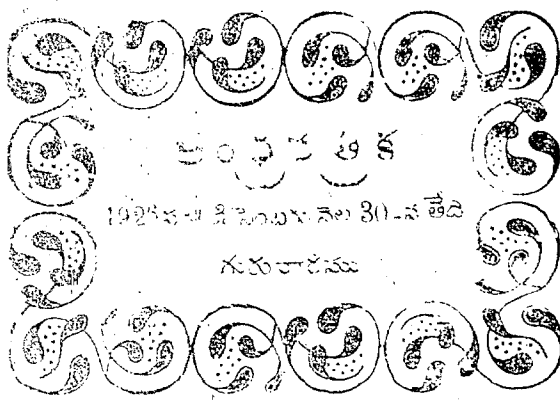 ఆంధ్రపత్రిక
1926 డిసెంబరు నెల 30-వ తేది
గురువారము